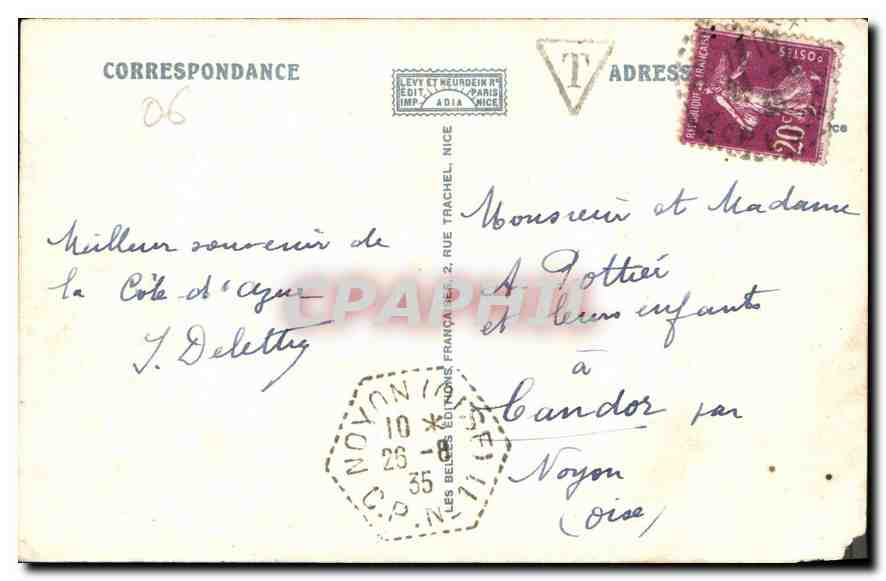 CORRESPONDANCE
06
LEVY ET NEURDEIN Rs
EDIT PARIS
IMP ADIA NICE
T
ADRESSE
RÉPUBLIQUE FRANÇAISE
POSTES
20c
Meilleur souvenir de
la Côte d'azur
J. Delettry
LES BELLES ÉDITIONS FRANÇAISES, 2, RUE TRACHEL, NICE
Monsieur et Madame
A Pottier
et leurs enfants
à
Candor par
Noyon
(Oise)
NOYON (OISE)
10 *
26 -8
35
C.P. N°1
CPAPHIL